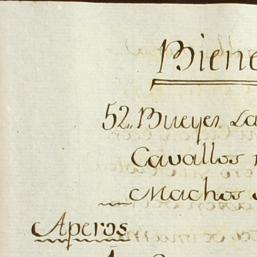 Biene
52. Bueyes La
Cavallos
Machos
Aperos